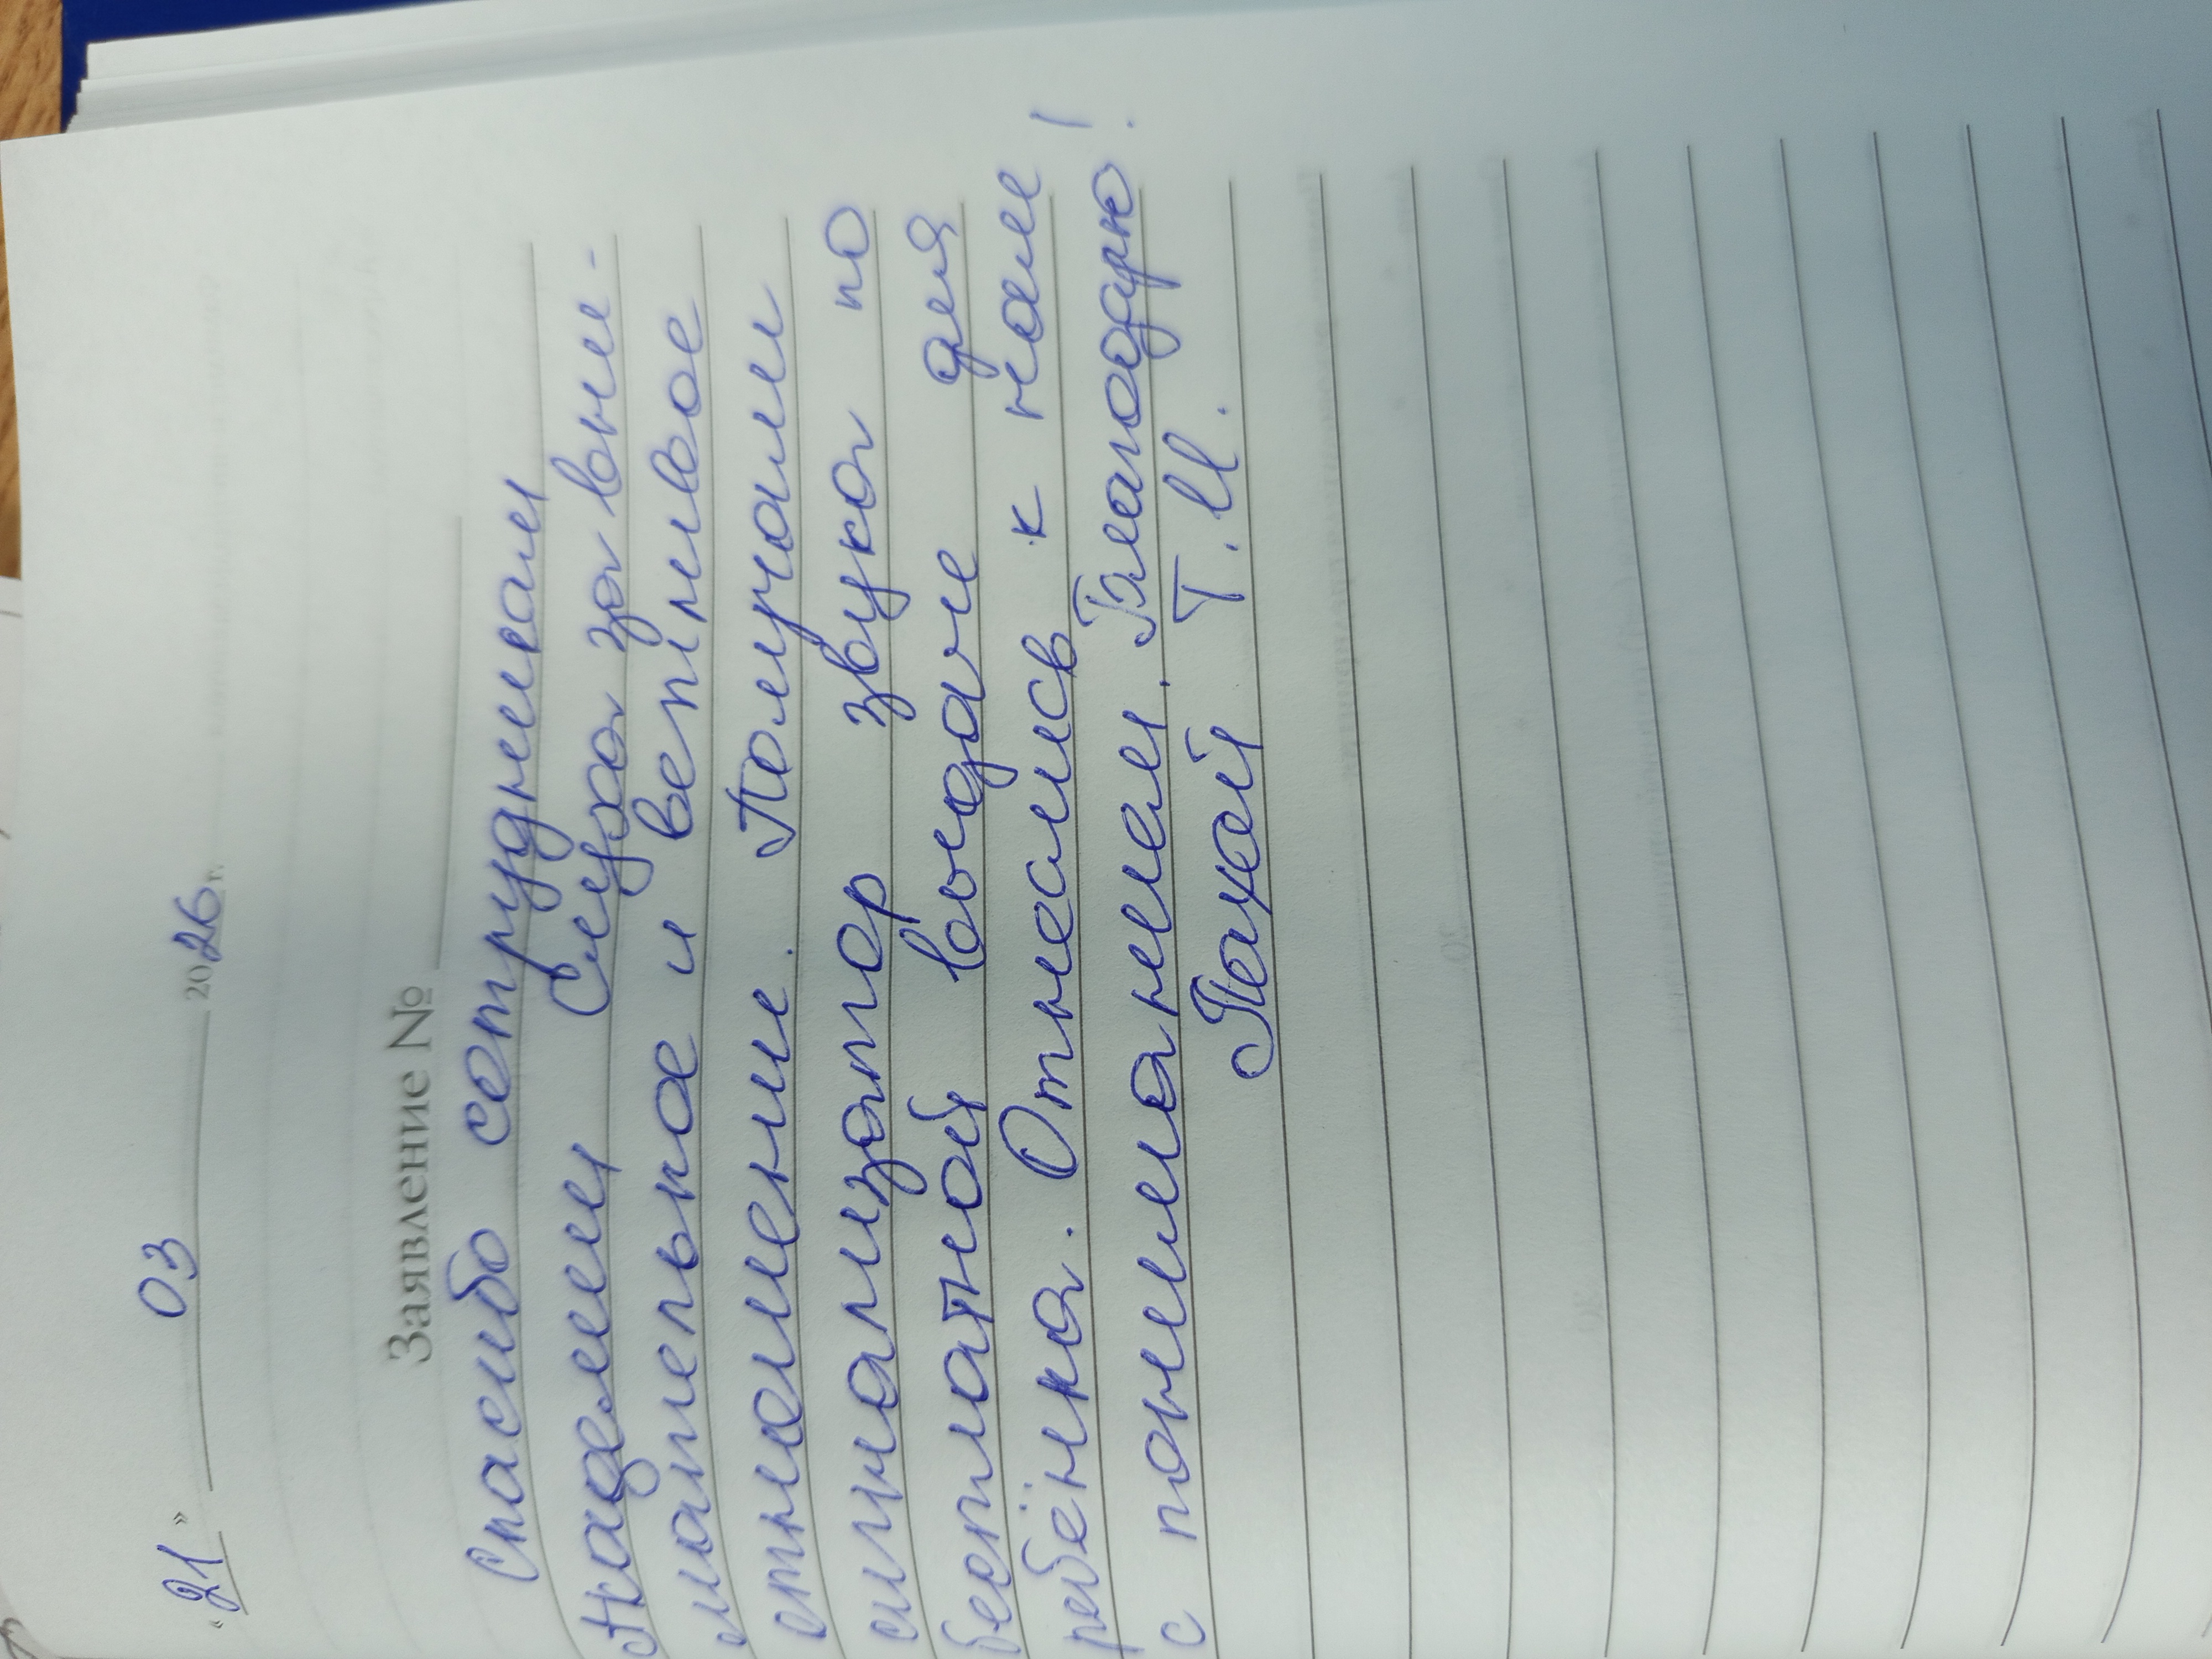 « 21 » 03 2026 г.
Заявление №
Спасибо сотрудникам
Академии Слуха за вни-
мательное и ветливое
отношение. Получали
сигнализатор звука по
бесплатной выдаче для
ребёнка. Отнеслись к нам
с пониманием. Благодарю!
Пахой Т.И.